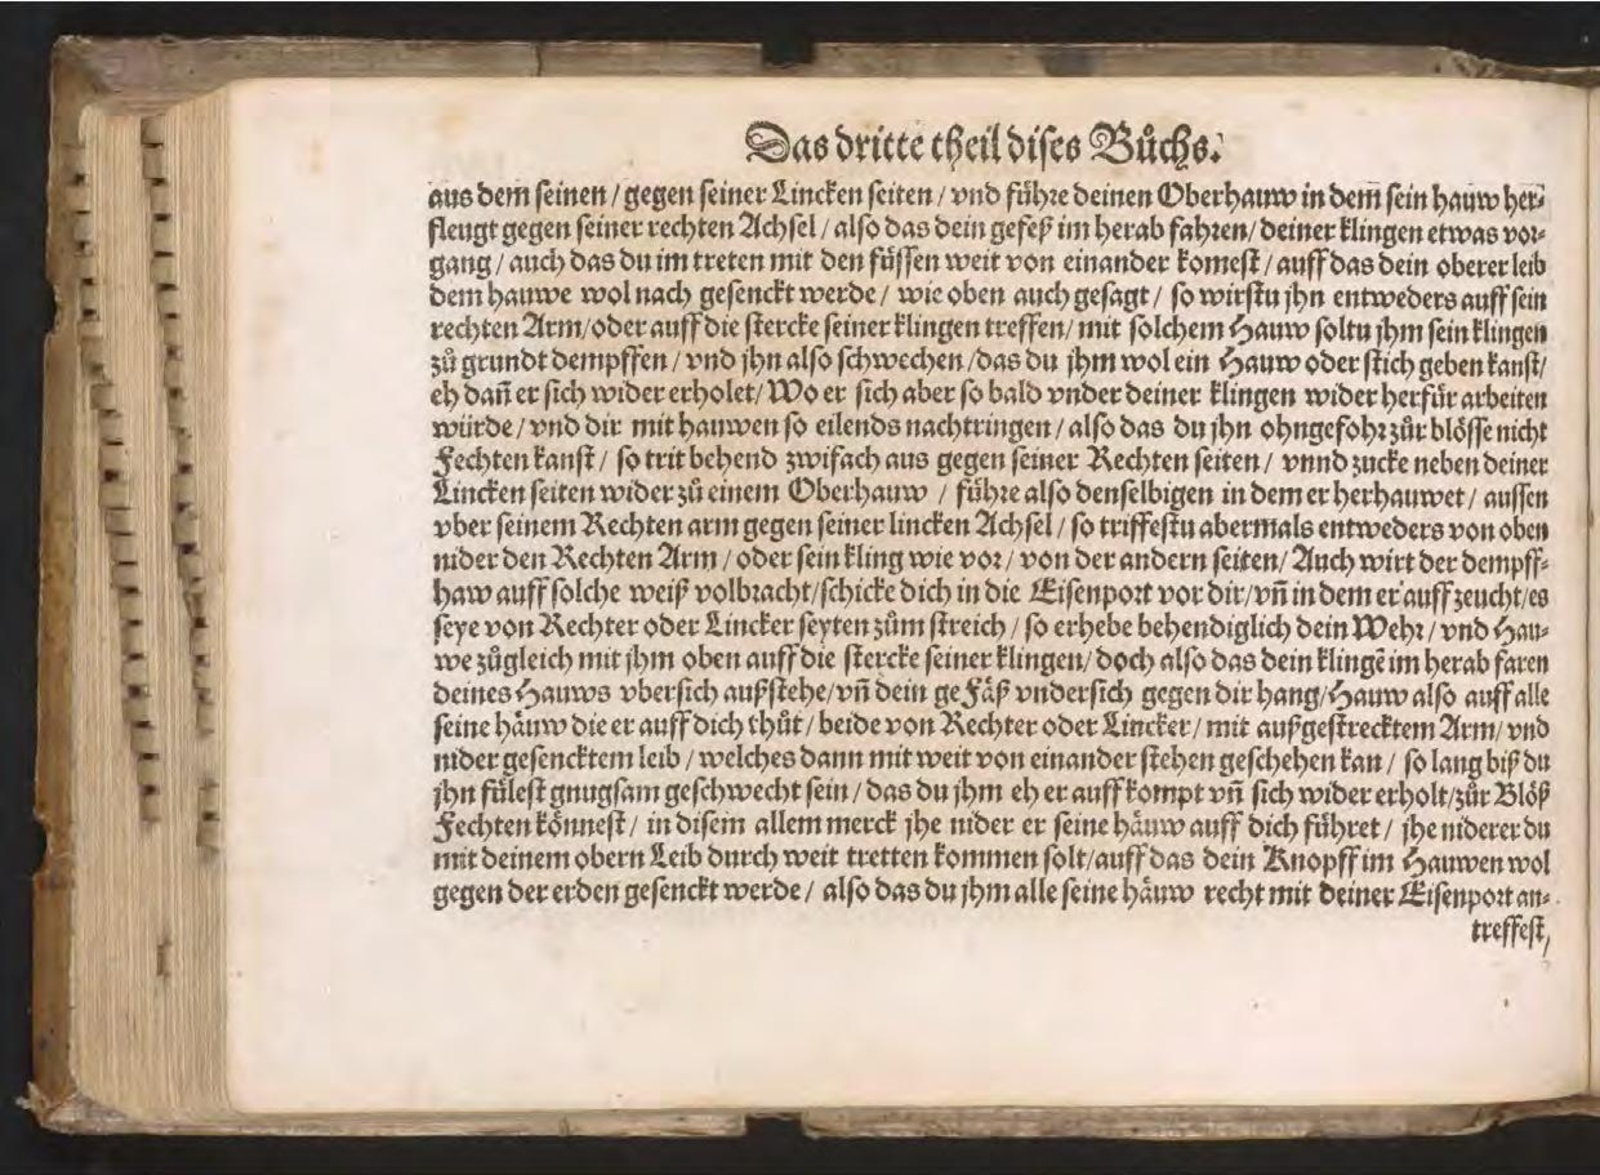 Das dritte theil dises Bůchs.
aus dem seinen / gegen seiner Lincken seiten / vnd führe deinen Oberhauw in dem̃ sein hauw her-
fleugt gegen seiner rechten Achsel / also das dein gefeß im herab fahren / deiner klingen etwas vor-
gang / auch das du im treten mit den füssen weit von einander komest / auff das dein oberer leib
dem hauwe wol nach gesenckt werde / wie oben auch gesagt / so wirstu jhn entweders auff sein
rechten Arm / oder auff die stercke seiner klingen treffen / mit solchem Hauw soltu jhm sein klingen
zů grundt dempffen / vnd jhn also schwechen / das du jhm wol ein Hauw oder stich geben kanst /
eh dañ er sich wider erholet / Wo er sich aber so bald vnder deiner klingen wider herfür arbeiten
würde / vnd dir mit hauwen so eilends nachtringen / also das du jhn ohngefohr zůr blösse nicht
Fechten kanst / so trit behend zwifach aus gegen seiner Rechten seiten / vnnd zucke neben deiner
Lincken seiten wider zů einem Oberhauw / führe also denselbigen in dem er herhauwet / aussen
vber seinem Rechten arm gegen seiner lincken Achsel / so triffestu abermals entweders von oben
nider den Rechten Arm / oder sein kling wie vor / von der andern seiten / Auch wirt der dempff-
haw auff solche weiß volbracht / schicke dich in die Eisenport vor dir / vñ in dem er auff zeucht / es
seye von Rechter oder Lincker seyten zům streich / so erhebe behendiglich dein Wehr / vnd Hau-
we zůgleich mit jhm oben auff die stercke seiner klingen / doch also das dein klingẽ im herab faren
deines Hauws vbersich außstehe / vñ dein geFäß vndersich gegen dir hang / Hauw also auff alle
seine häuw die er auff dich thůt / beide von Rechter oder Lincker / mit außgestrecktem Arm / vnd
nider gesencktem leib / welches dann mit weit von einander stehen geschehen kan / so lang biß du
jhn fülest gnugsam geschwecht sein / das du jhm eh er auff kompt vñ sich wider erholt / zůr Blöß
Fechten könnest / in disem allem merck jhe nider er seine häuw auff dich führet / jhe niderer du
mit deinem obern Leib durch weit tretten kommen solt / auff das dein Knopff im Hauwen wol
gegen der erden gesenckt werde / also das du jhm alle seine häuw recht mit deiner Eisenport an-
treffest,